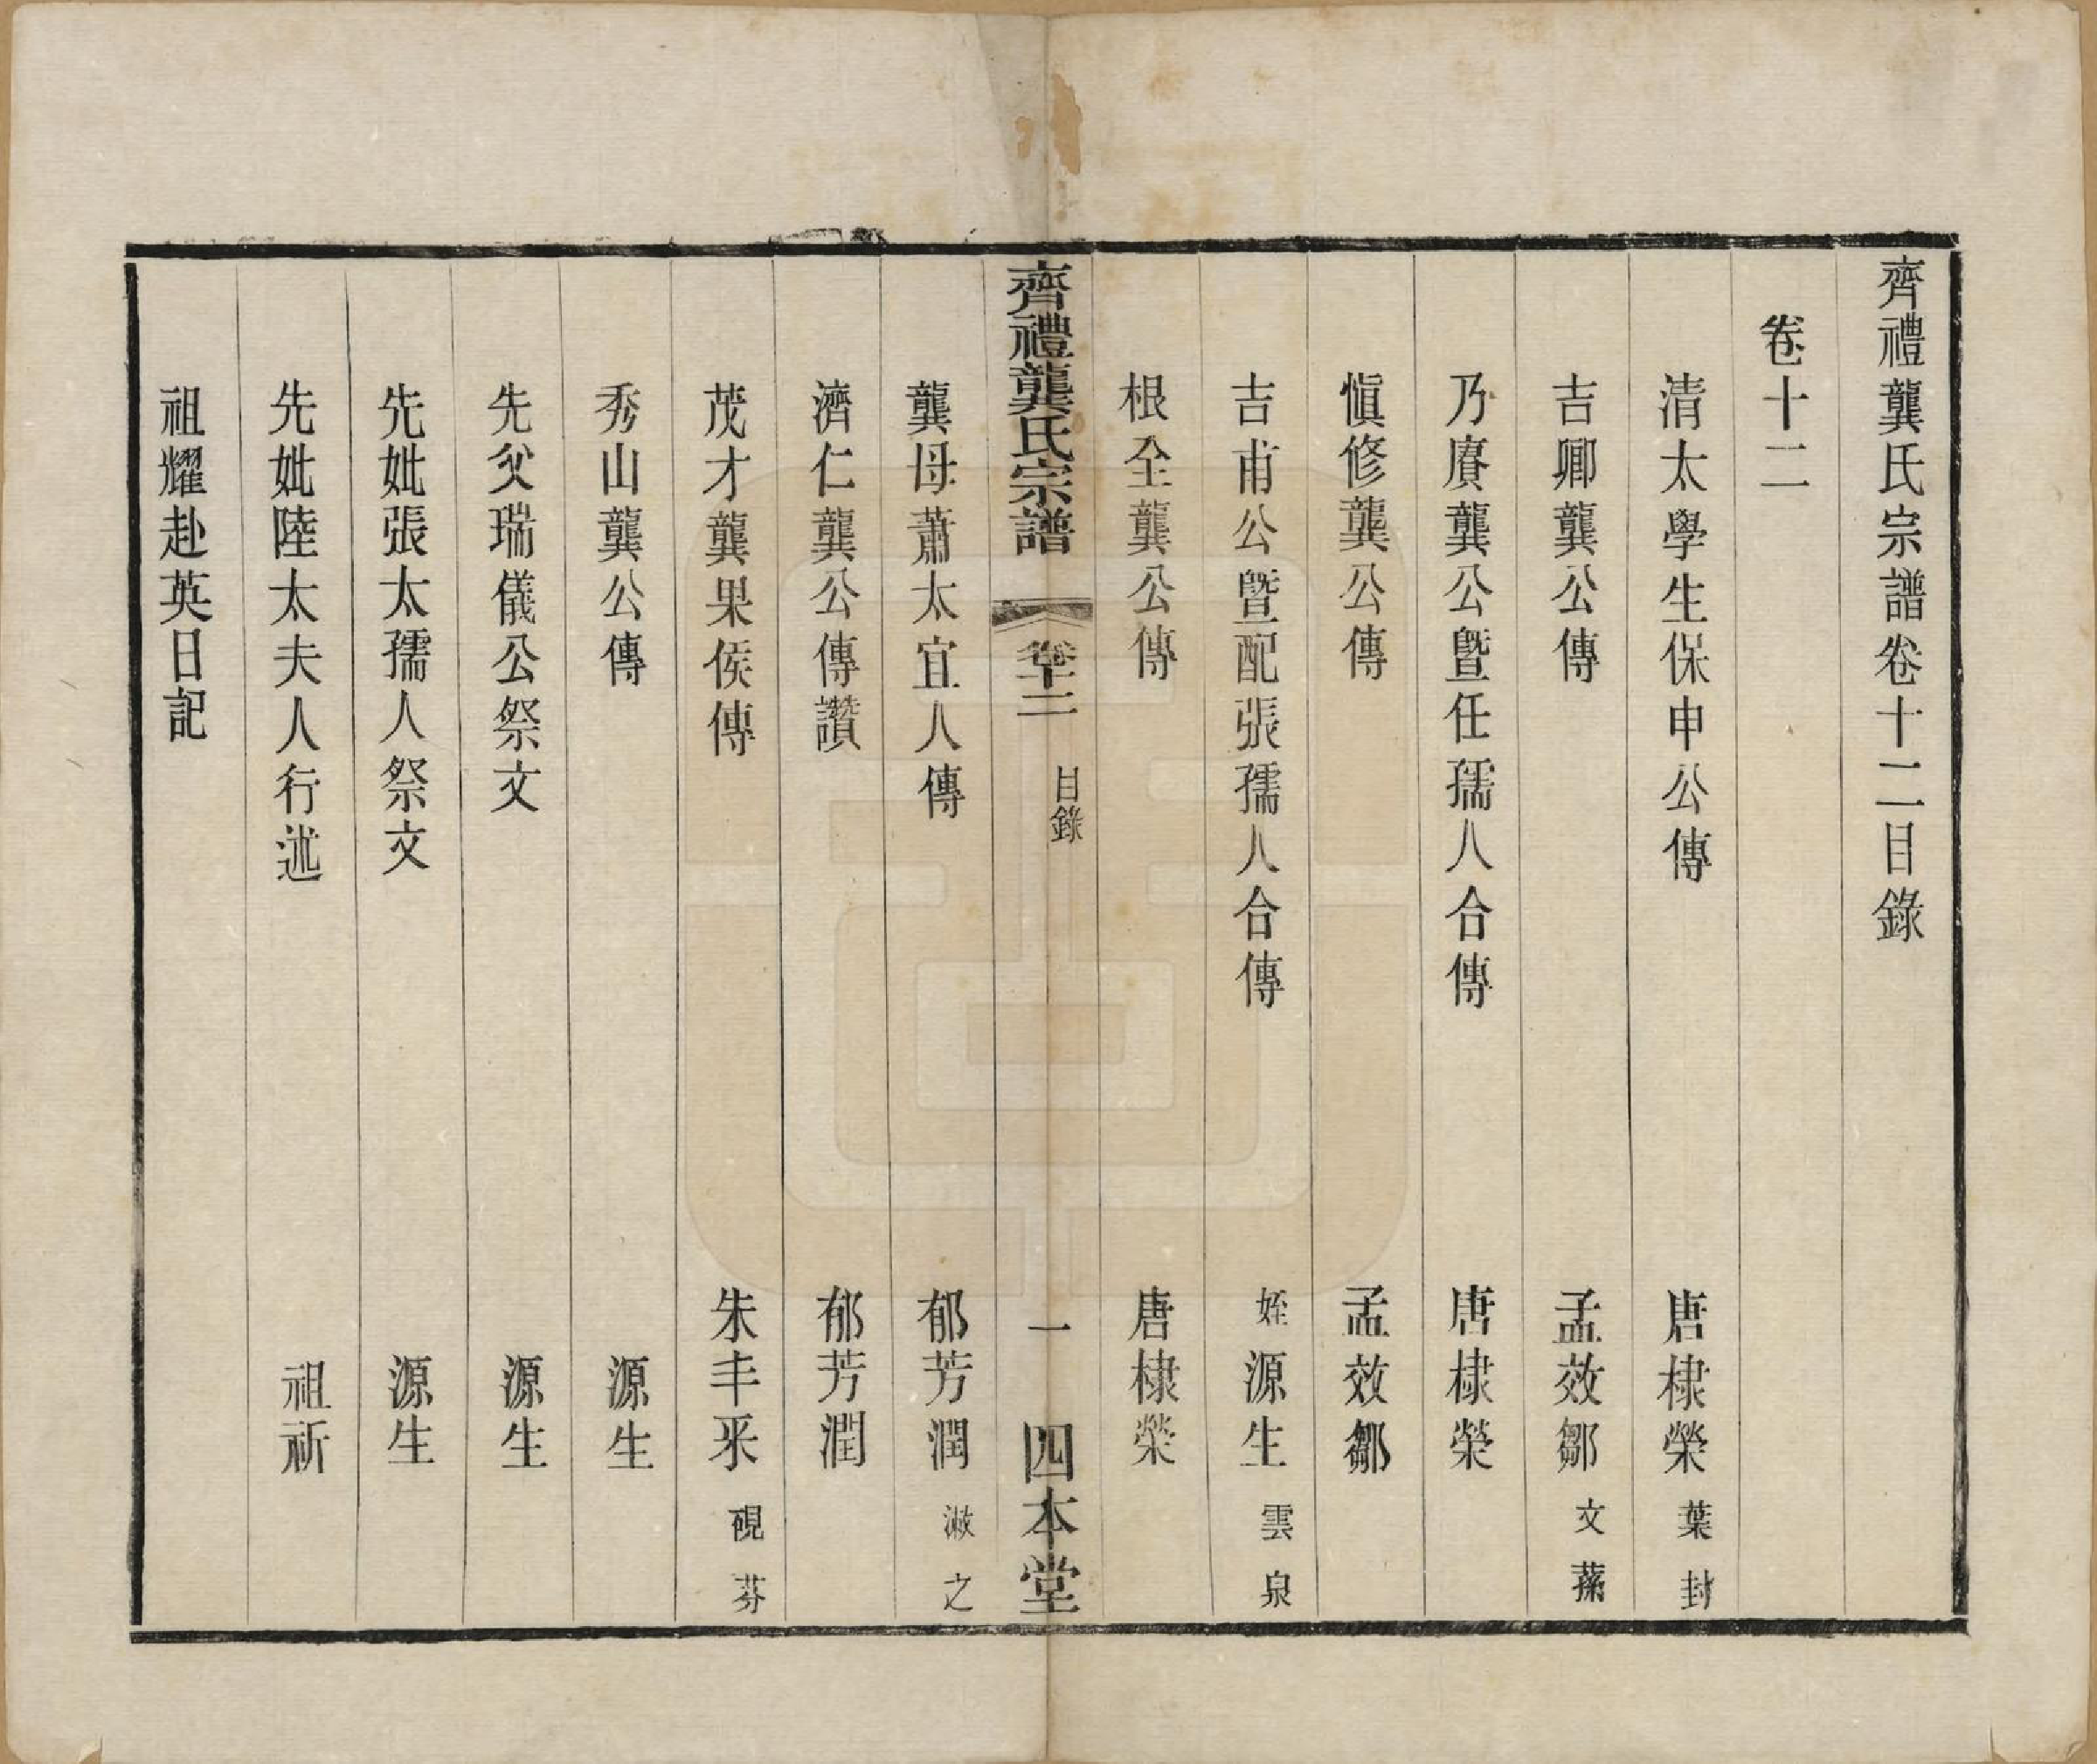 齊禮龔氏宗譜卷十二目錄
卷十二
清太學生保申公傳 唐棣榮 葉封
吉卿龔公傳 孟效鄒 文蓀
乃賡龔公暨任孺人合傳 唐棣榮
愼修龔公傳 孟效鄒
吉甫公暨配張孺人合傳 姪源生 雲泉
根全龔公傳 唐棣榮
齊禮龔氏宗譜 卷十二 目錄 一 四本堂
龔母蕭太宜人傳 郁芳潤 漱之
濟仁龔公傳讚 郁芳潤
茂才龔果侯傳 朱丰采 硯芬
秀山龔公傳 源生
先父瑞儀公祭文 源生
先妣張太孺人祭文 源生
先妣陸太夫人行述 祖祈
祖耀赴英日記